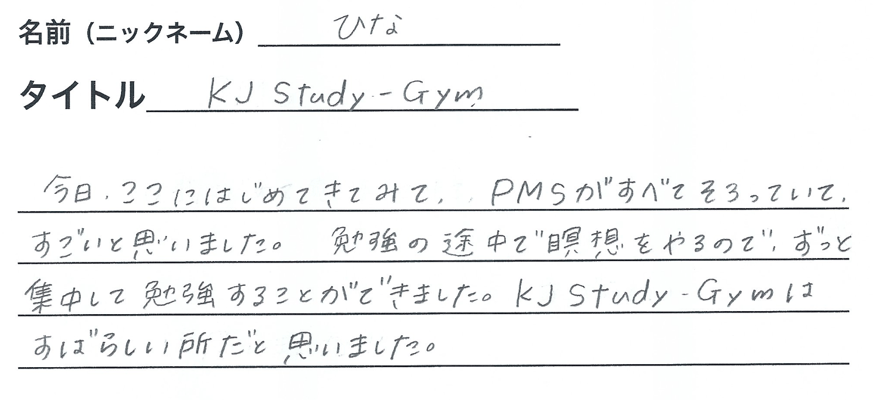 名前（ニックネーム） ひな
タイトル KJ Study-Gym
今日、ここにはじめてきてみて、PMSがすべてそろっていて、
すごいと思いました。 勉強の途中で瞑想をやるので、ずっと
集中して勉強することができました。KJ Study-Gymは
すばらしい所だと思いました。